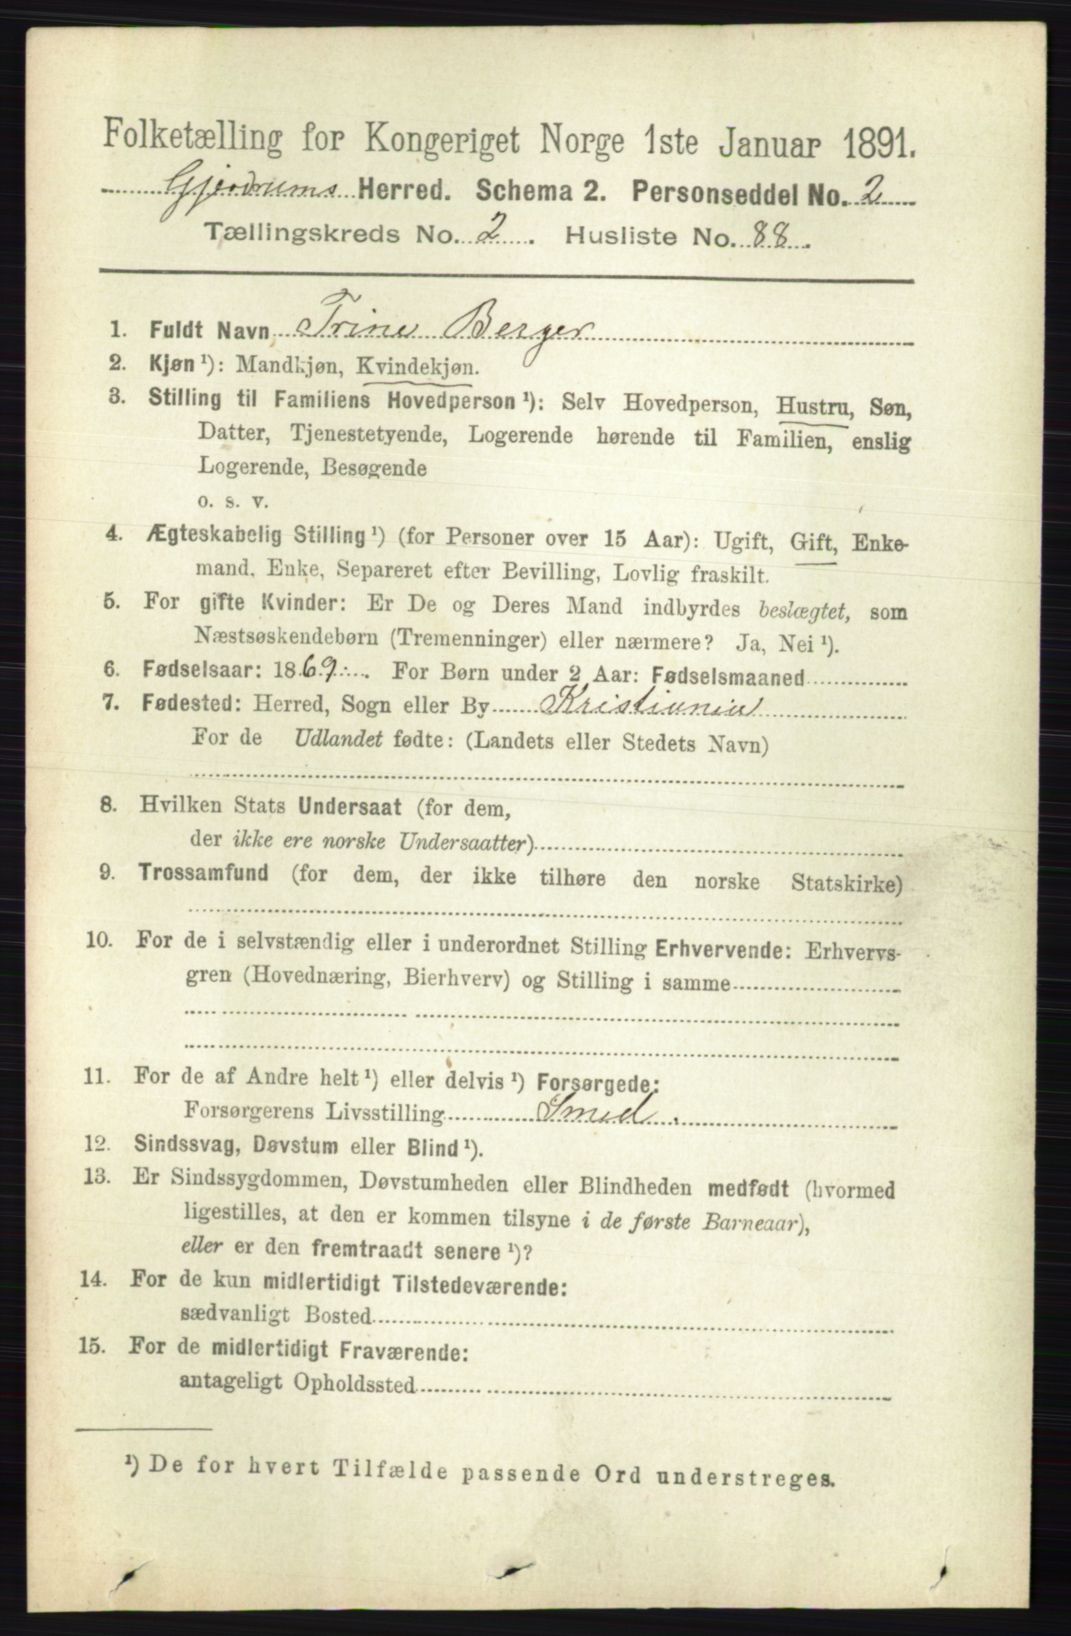 Folketælling for Kongeriget Norge 1ste Januar 1891.
Gjerdrums Herred. Schema 2. Personseddel No. 2
Tællingskreds No. 2. Husliste No. 88.
1. Fuldt Navn Trine Berger
2. Kjøn ¹): Mandkjøn, Kvindekjøn.
3. Stilling til Familiens Hovedperson ¹): Selv Hovedperson, Hustru, Søn,
Datter, Tjenestetyende, Logerende hørende til Familien, enslig
Logerende, Besøgende
o. s. v.
4. Ægteskabelig Stilling ¹) (for Personer over 15 Aar): Ugift, Gift, Enke-
mand, Enke, Separeret efter Bevilling, Lovlig fraskilt.
5. For gifte Kvinder: Er De og Deres Mand indbyrdes beslægtet, som
Næstsøskendebørn (Tremenninger) eller nærmere? Ja, Nei ¹).
6. Fødselsaar: 1869. For Børn under 2 Aar: Fødselsmaaned
7. Fødested: Herred, Sogn eller By Kristiania
For de Udlandet fødte: (Landets eller Stedets Navn)
8. Hvilken Stats Undersaat (for dem,
der ikke ere norske Undersaatter)
9. Trossamfund (for dem, der ikke tilhøre den norske Statskirke)
10. For de i selvstændig eller i underordnet Stilling Erhvervende: Erhvervs-
gren (Hovednæring, Bierhverv) og Stilling i samme
11. For de af Andre helt ¹) eller delvis ¹) Forsørgede:
Forsørgerens Livsstilling Smed.
12. Sindssvag, Døvstum eller Blind ¹).
13. Er Sindssygdommen, Døvstumheden eller Blindheden medfødt (hvormed
ligestilles, at den er kommen tilsyne i de første Barneaar),
eller er den fremtraadt senere ¹)?
14. For de kun midlertidigt Tilstedeværende:
sædvanligt Bosted
15. For de midlertidigt Fraværende:
antageligt Opholdssted
¹) De for hvert Tilfælde passende Ord understreges.